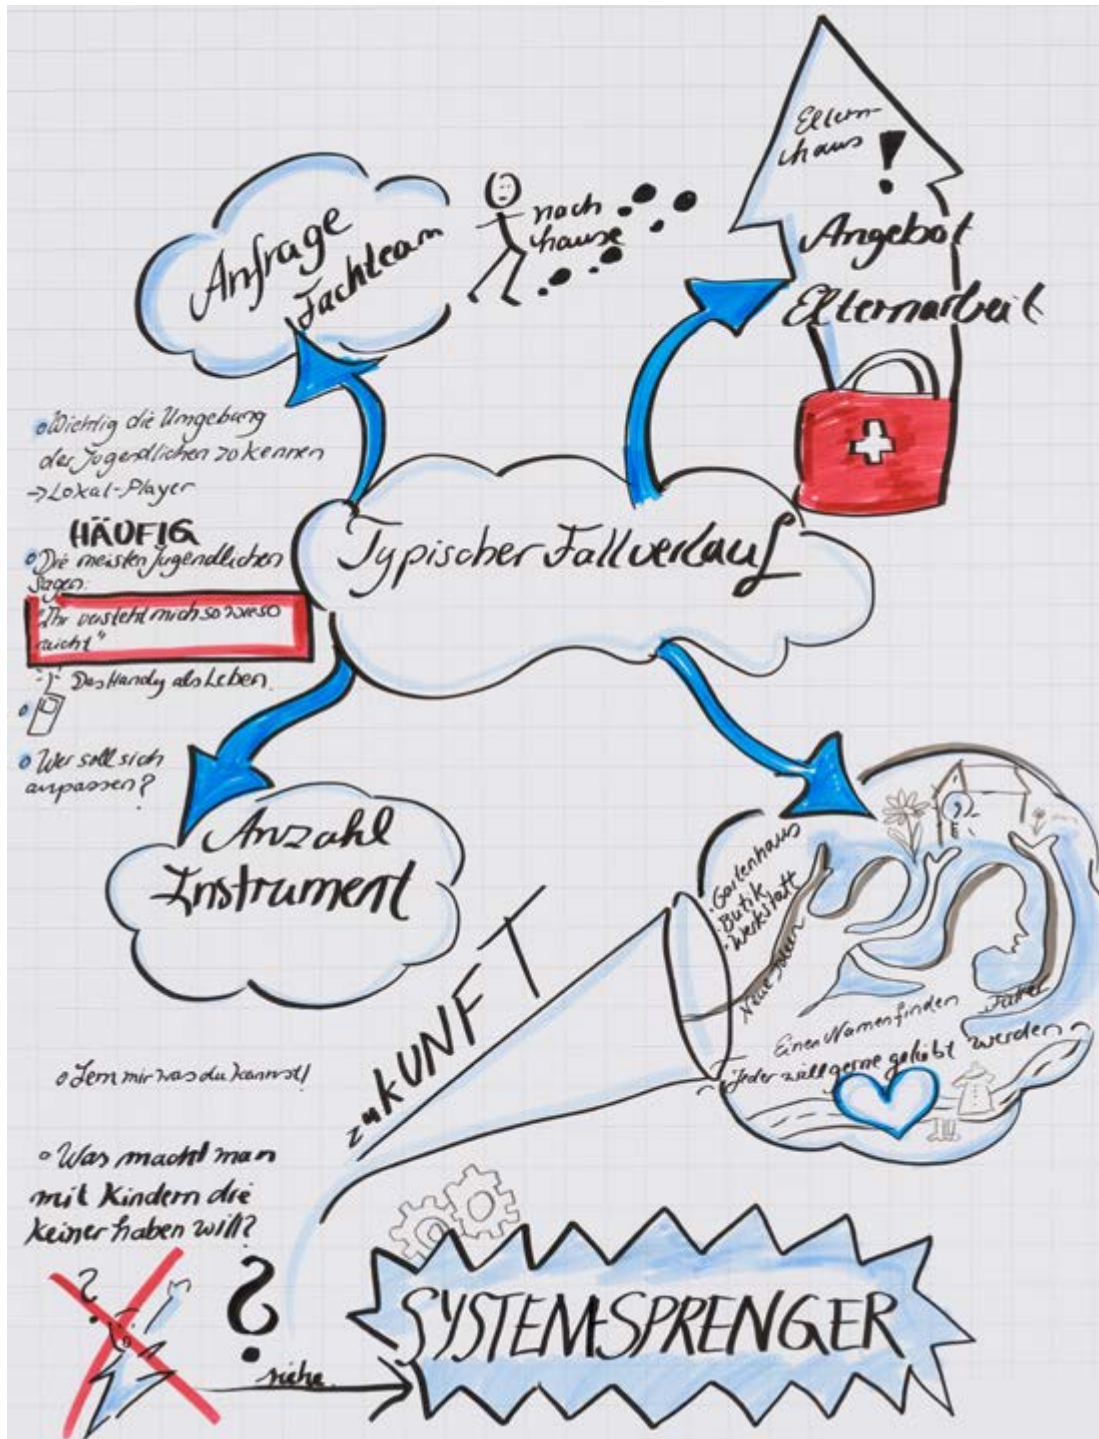 Eltern-
haus !
Anfrage
Fachteam
nach
hause
Angebot
Elternarbeit
Wichtig die Umgebung
der Jugendlichen zo kennen
-> Lokal-Player
HÄUFIG
Die meisten Jugendlichen
sagen:
"Ihr versteht mich so wieso
nicht"
Das Handy als Leben
Wer soll sich
anpassen?
Typischer Fallverlauf
Anzahl
Instrument
ZuKUNFT
· Gartenhaus
· Butik
· Werkstatt
Neue Ideen
Einen Namen finden
Jeder will gerne geliebt werden
Lern mir was du kannst!
Was macht man
mit Kindern die
Keiner haben will?
?
?
siehe
SYSTEM-SPRENGER